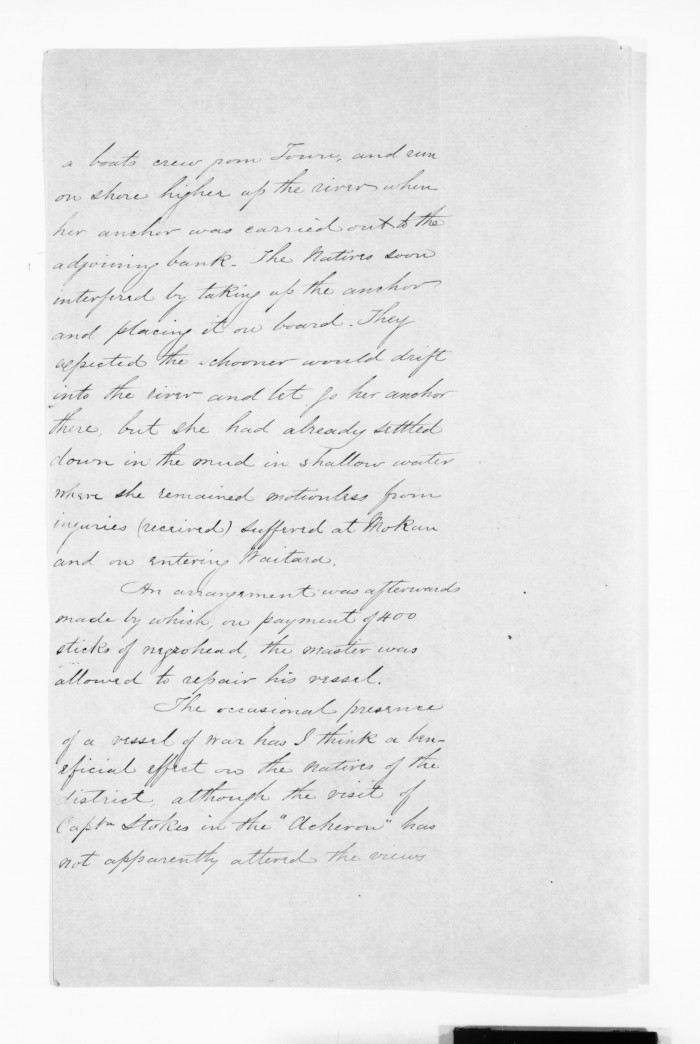 a boats crew from Town, and run
on shore higher up the river when
her anchor was carried out to the
adjoining bank. The Natives soon
interfered by taking up the anchor
and placing it on board. They
expected the schooner would drift
into the river and let go her anchor
there, but she had already settled
down in the mud in shallow water
where she remained motionless from
injuries (received) suffered at Mokau
and on entering Waitara.
An arrangement was afterwards
made by which, on payment of 400
sticks of negrohead, the master was
allowed to repair his vessel.
The occasional presence
of a vessel of war has I think a ben-
eficial effect on the natives of the
district, although the visit of
Captn Stokes in the "Acheron" has
not apparently altered the views